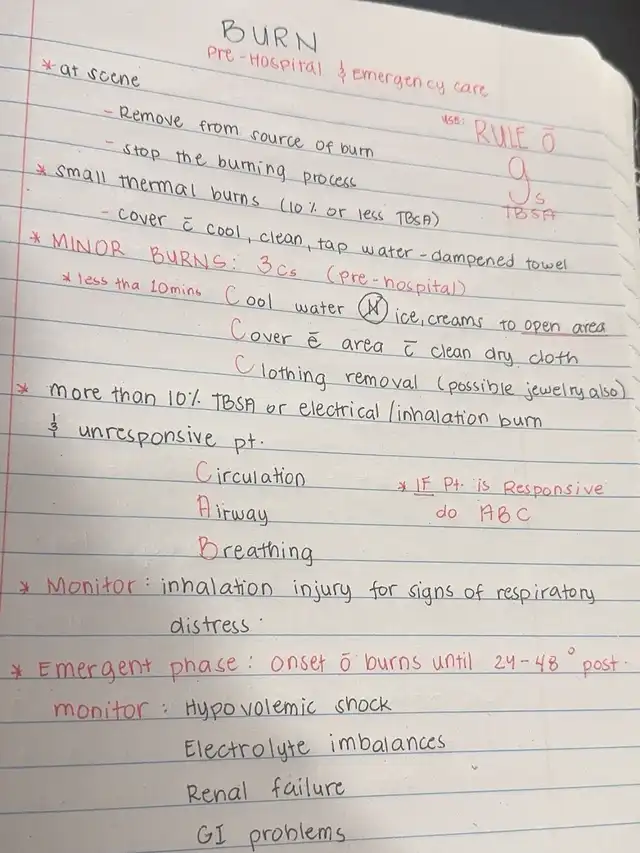 BURN
Pre-Hospital & Emergency care
* at scene
- Remove from source of burn
- stop the burning process
use: RULE ō
9s
TBSA
* small thermal burns (10% or less TBSA)
- cover c̄ cool, clean, tap water-dampened towel
* MINOR BURNS: 3Cs (pre-hospital)
* less tha 10mins Cool water Ⓝ ice, creams to open area
Cover ē area c̄ clean dry cloth
Clothing removal (possible jewelry also)
* more than 10% TBSA or electrical/inhalation burn
& unresponsive pt.
Circulation
Airway
Breathing
* IF Pt. is Responsive
do ABC
* Monitor: inhalation injury for signs of respiratory
distress.
* Emergent phase: onset ō burns until 24-48° post.
monitor: Hypovolemic shock
Electrolyte imbalances
Renal failure
GI problems